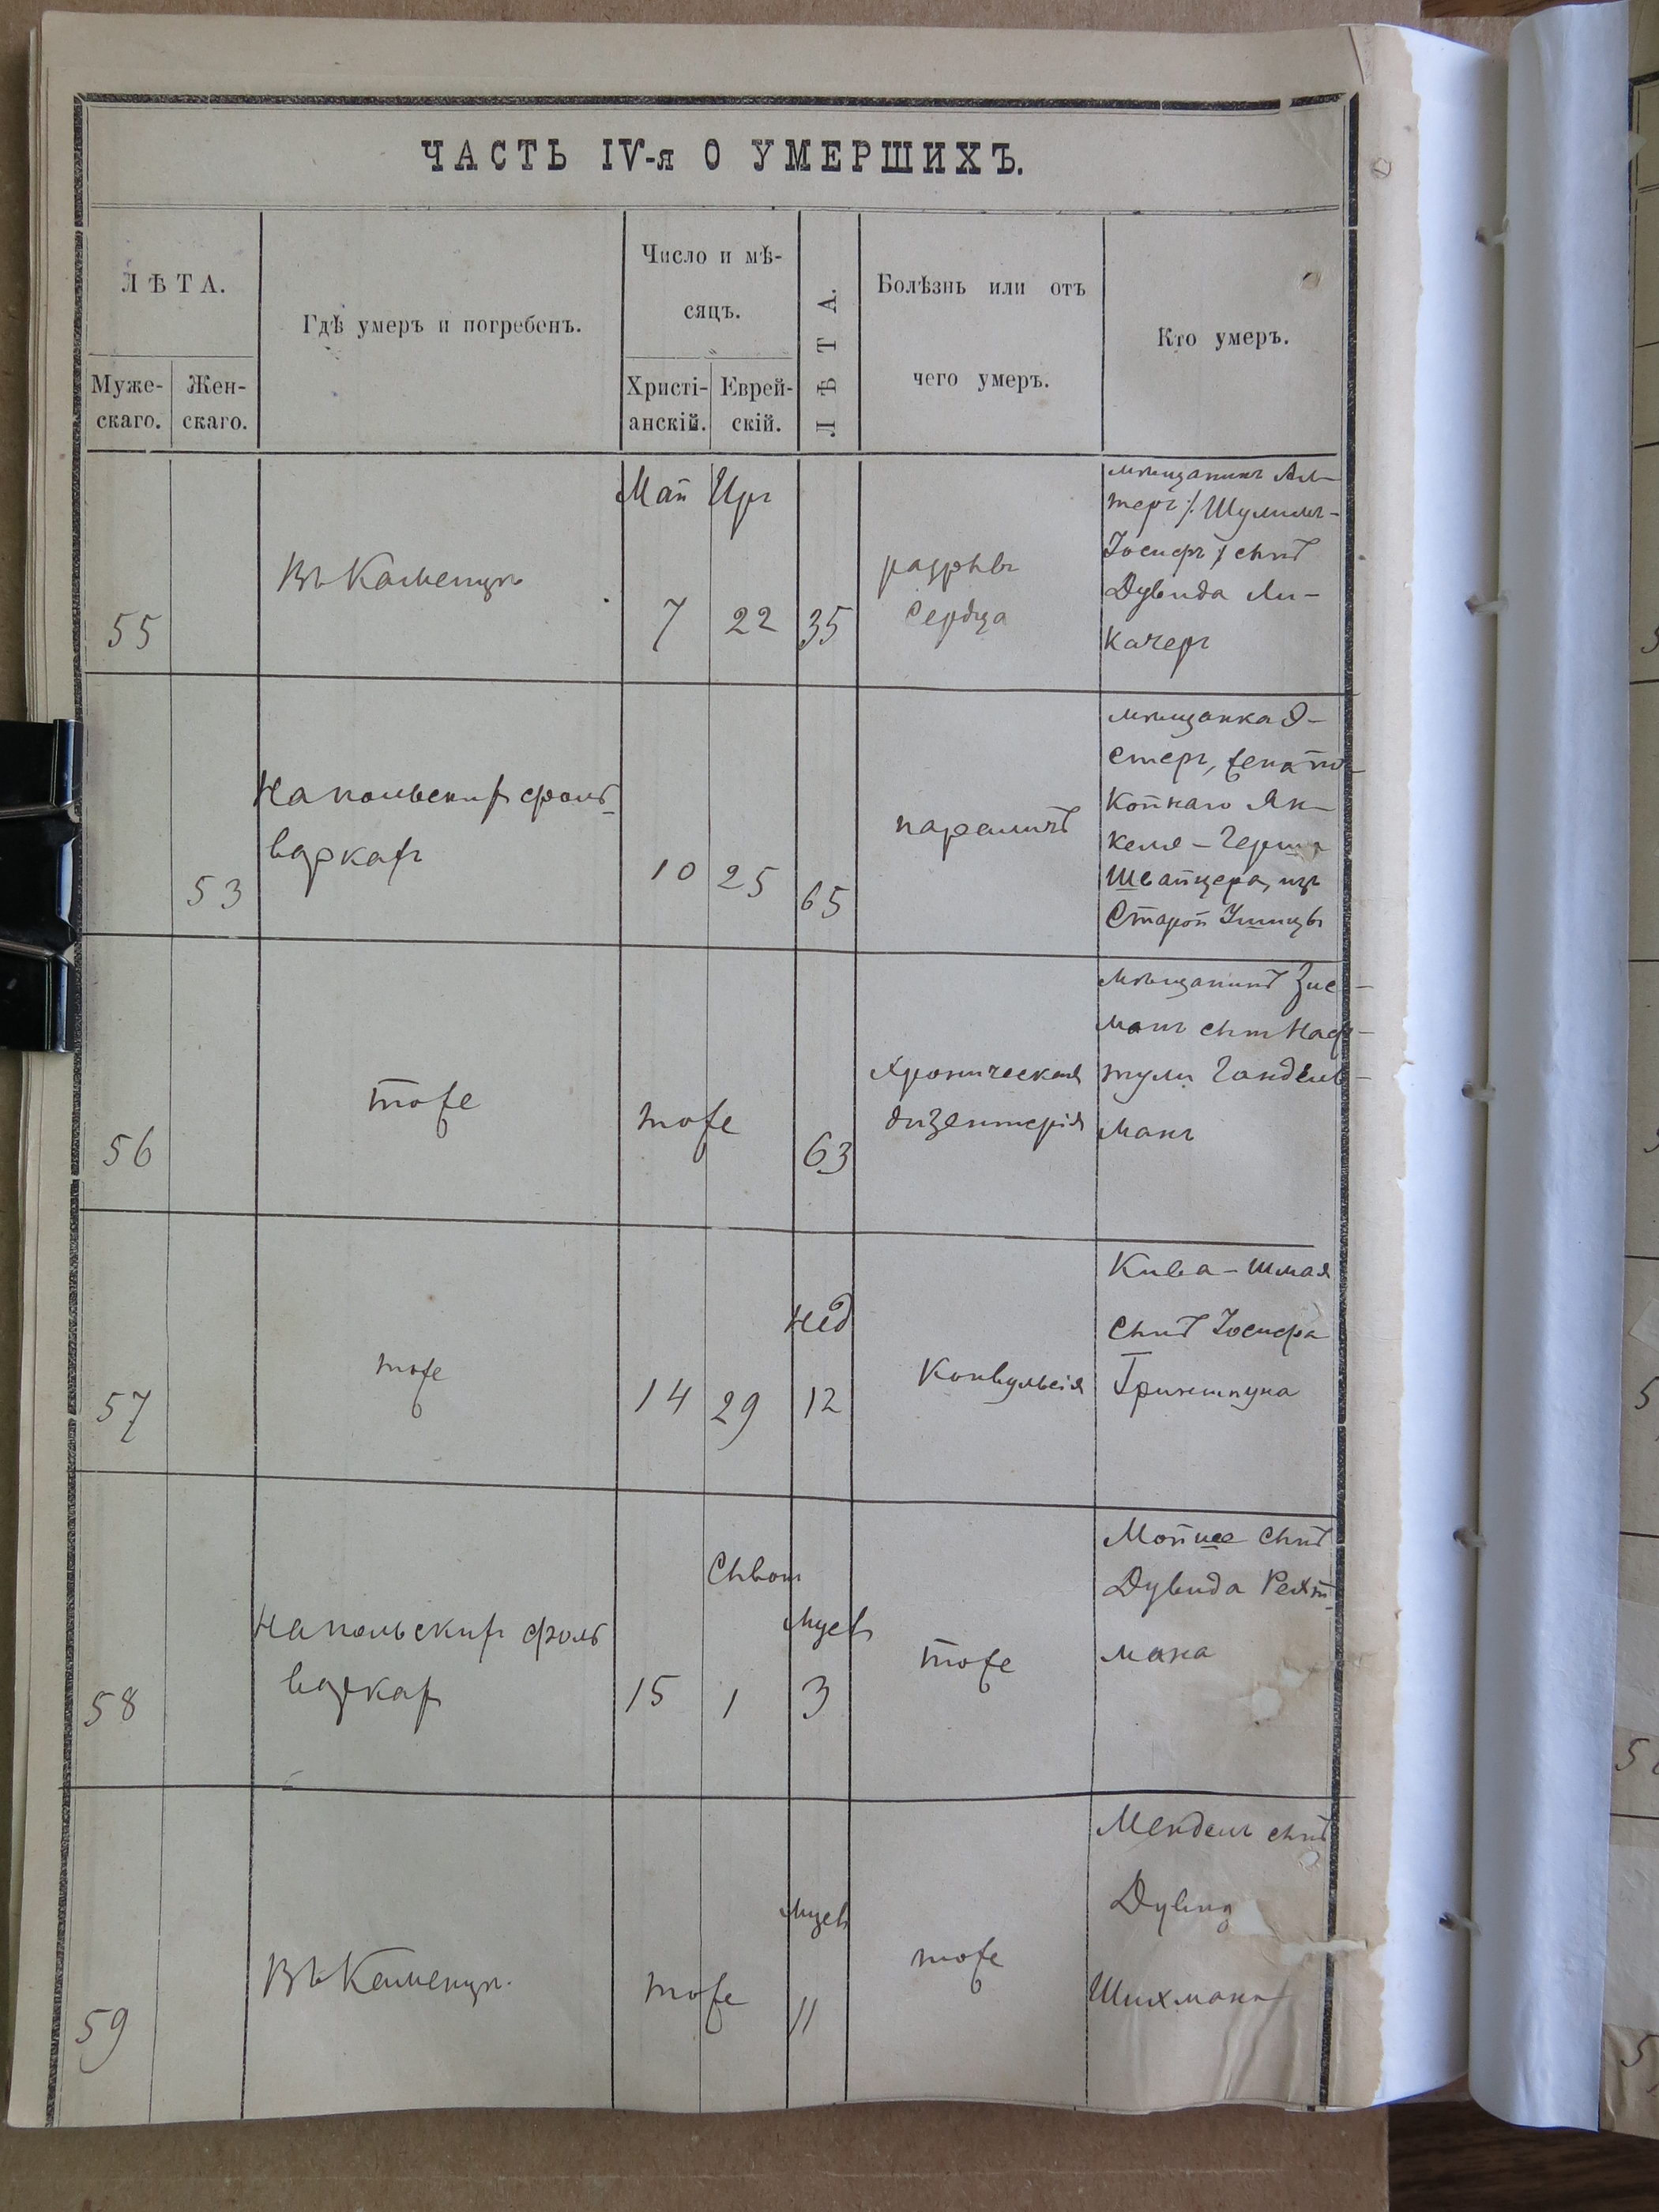 ЧАСТЬ IV-я О УМЕРШИХЪ.
ЛѢТА.
Муже-
скаго.
Жен-
скаго.
Гдѣ умеръ и погребенъ.
Число и мѣ-
сяцъ.
Христі-
анскій.
Еврей-
скій.
ЛѢТА.
Болѣзнь или отъ
чего умеръ.
Кто умеръ.
55
Въ Каменцѣ
Май
7
Иръ
22
35
разрывъ
сердца
мѣщанинъ Аль-
теръ /: Шулимъ-
Іосифъ :/ сынъ
Дувида Ли-
качеръ
53
На польскихъ фоль-
варкахъ
10
25
65
параличъ
мѣщанка Э-
стеръ, жена по-
койнаго Ян-
келя-Герша
Швайцера, изъ
Старой Ушицы
56
тоже
тоже
63
хроническая
дизентерія
мѣщанинъ Зис-
манъ сынъ Наф-
тули Гандель-
манъ
57
тоже
14
29
нед
12
Конвульсія
Кива-Шмая
сынъ Іосифа
Гриншпуна
58
На польскихъ фоль
варках
15
Сывон
1
мцев
3
тоже
Мойше сынъ
Дувида Рехт-
мана
59
Въ Каменцѣ.
тоже
мцев
11
тоже
Мендель сынъ
Дувид
Шихмана